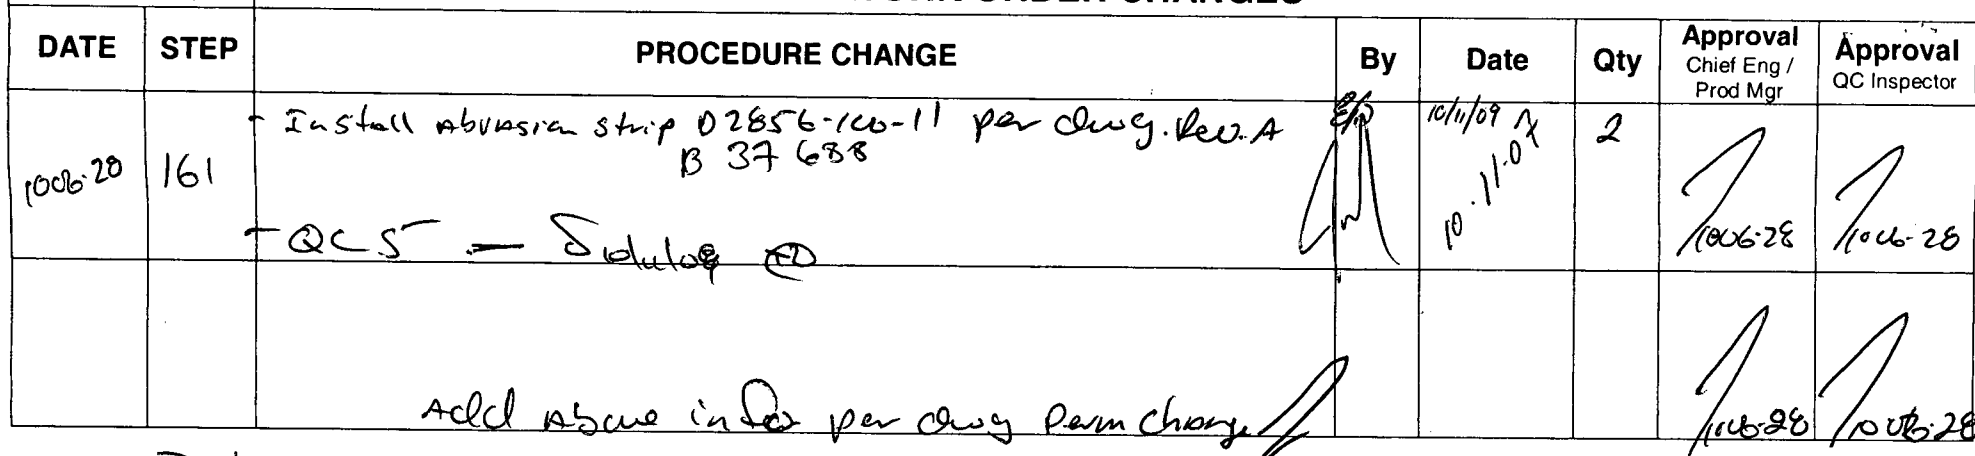 DATE STEP PROCEDURE CHANGE By Date Qty Approval Chief Eng / Prod Mgr Approval QC Inspector
- Install Abrasion strip D2856-160-11 per dwg. Rev. A 10/11/09 2
B 37688
1006-28 161 10.11.09
- QC5 —
10-06-28 10-06-28
Add Above info per dwg perm change
10-06-28 10-06-28